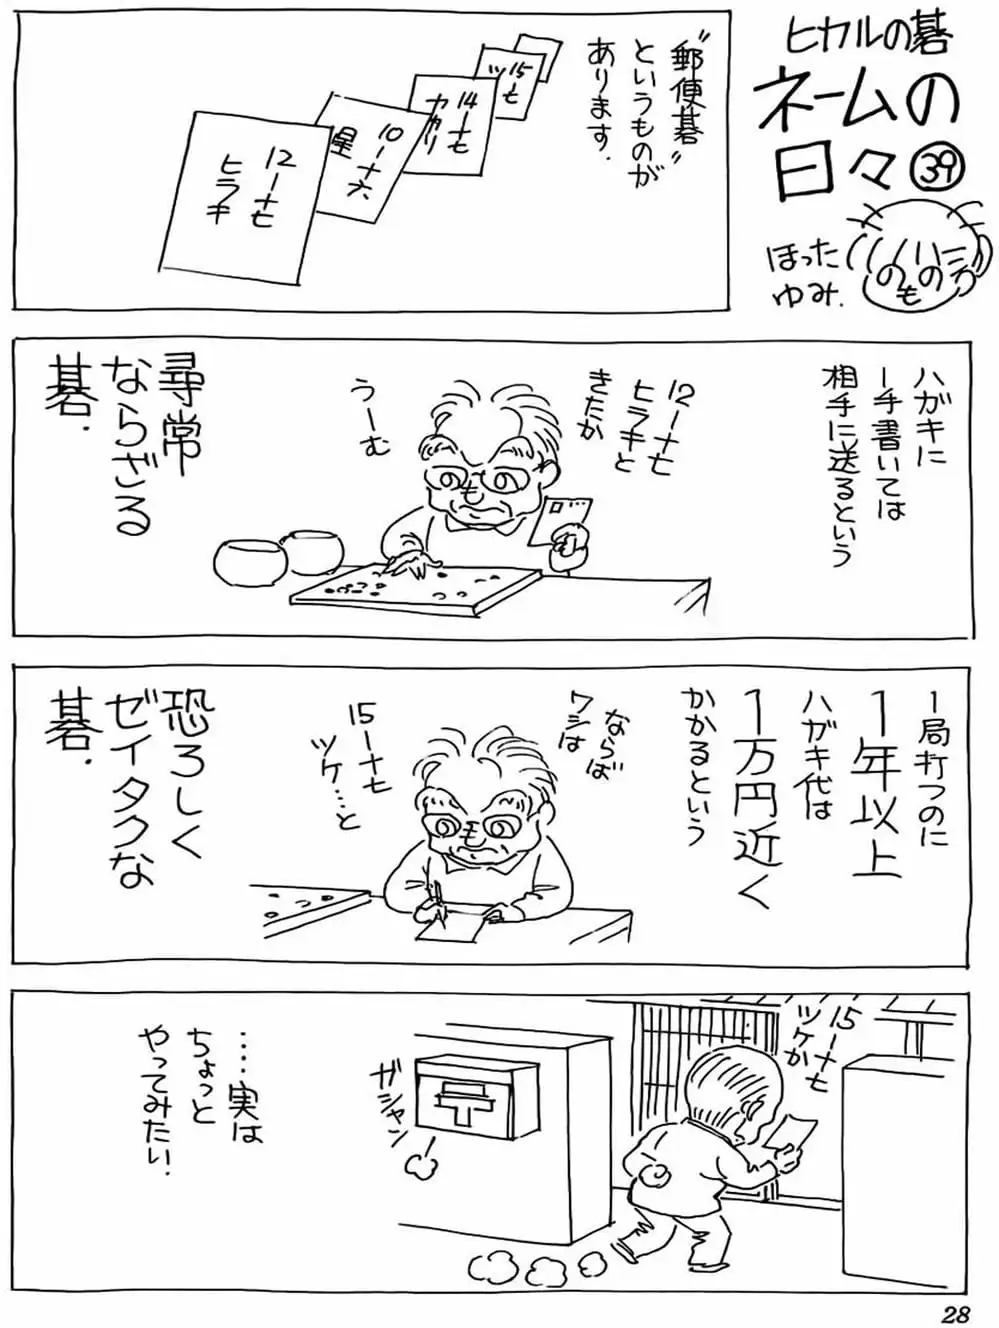 ヒカルの碁
ネームの
日々㊴
ほった
ゆみ.
へのへのもへの
"郵便碁"
というものが
あります.
15ー七
ツケ
14ー十七
カカリ
10ー十六
星
12ー十七
ヒラキ
ハガキに
一手書いては
相手に送るという
12ー十七
ヒラキと
きたか
うーむ
尋常
ならざる
碁.
一局打つのに
1年以上
ハガキ代は
1万円近く
かかるという
ならば
ワシは
15ー十七
ツケ…と
恐ろしく
ゼイタクな
碁.
15ー十七
ツケか
〒
ガシャン
…実は
ちょっと
やってみたい.
28